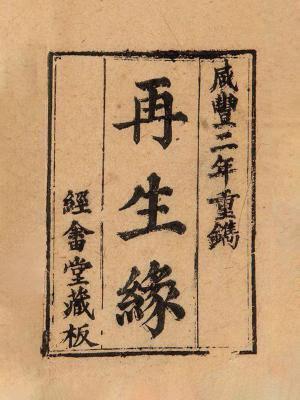 咸豐二年重鐫
再生緣
經畬堂藏板